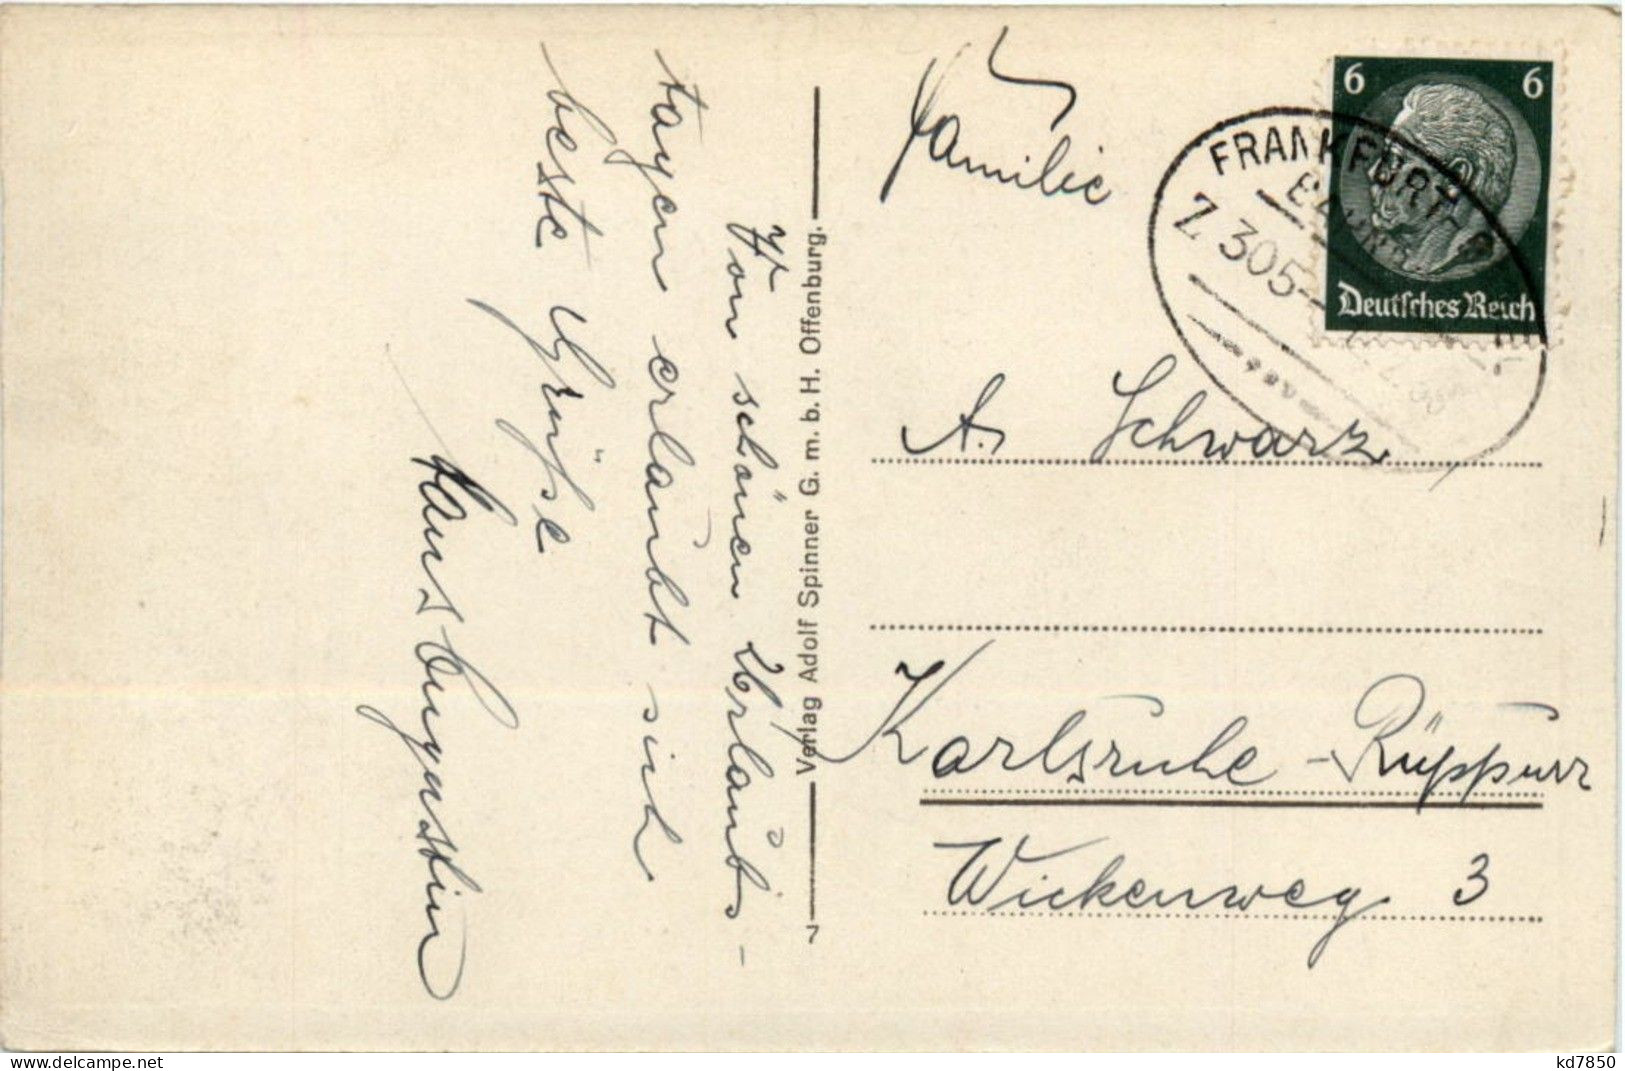 Von schönen Urlaubs-
tagen erlaubt sich
beste Grüße
Hans Augustin
Verlag Adolf Spinner G. m. b. H. Offenburg.
7
Familie
A. Schwarz
Karlsruhe-Rüppurr
Wickenweg 3
6 6
Deutsches Reich
FRANKFURT
Z. 305
kd7850